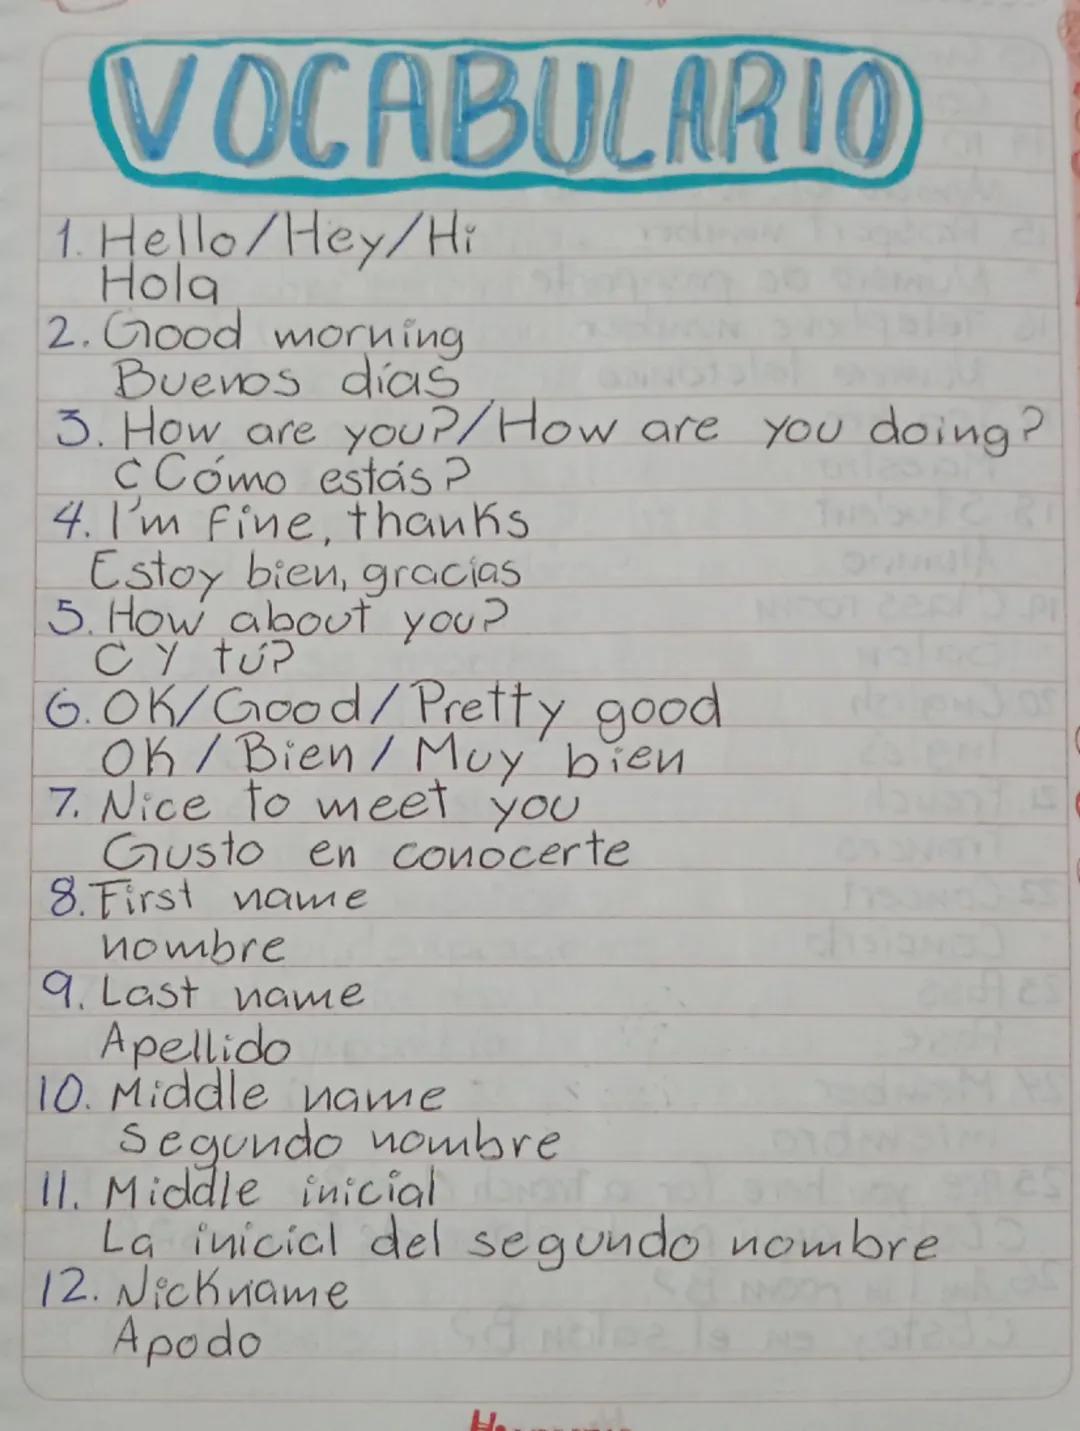 VOCABULARIO
1. Hello/Hey/Hi
Hola
2. Good morning
Buenos días
3. How are you?/How are you doing?
¿Cómo estás?
4. I'm fine, thanks
Estoy bien, gracias
5. How about you?
¿Y tú?
6. OK/Good/Pretty good
OK/Bien/Muy bien
7. Nice to meet you
Gusto en conocerte
8. First name
nombre
9. Last name
Apellido
10. Middle name
segundo nombre
11. Middle inicial
La inicial del segundo nombre
12. Nickname
Apodo